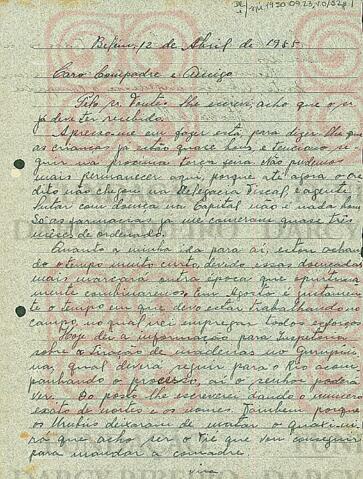 Belém, 12 de Abril de 1955.
Caro Compadre e Amigo
Pelo sr. lhe escrevi, acho que o sr.
já deve ter recebido.
Apresso-me em fazer esta, para dizer-lhe que
as crianças já estão quase boas, e tenciono se-
guir na proxima terça feira. Não pudemos
mais permanecer aqui, porque até agora o cre-
dito não chegou na Delegacia Fiscal, e agente
lutar com doença na Capital não é nada bom
só as farmacias já me comeram quase três
mêses de ordenado.
Quanto a minha ida para aí, estou achan-
do o tempo muito curto, devido essas doenças
mais marcará outra época que
mente combinaremos. Em Agosto é justamen-
te o tempo em que devo estar trabalhando no
campo, no qual irei empregar todos esforços
Hoje dei a informação para Inspetoria
sobre a tiração de madeiras no Gurupi
na, qual deverá seguir para o Rio acom
panhando o processo, aí o senhor poderá
ver. Do posto lhe escreverei dando o numero
exato de mortos e os nomes. Tambem porque
os Urubus deixaram de matar o quatimi
rá que acho ser o Tie que vou conseguir
para mandar a comadre.
vira
DARCY RIBEIRO